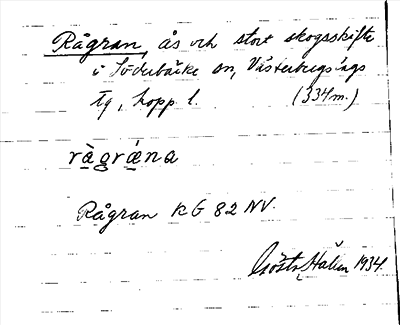 Rågran, ås och stort skogsskifte
i Söderbärke sn, Västerbergslags
fg, Kopp. l. (334 m.)
rågräna
Rågran KG 82 NV.
Gösta Halén 1934.